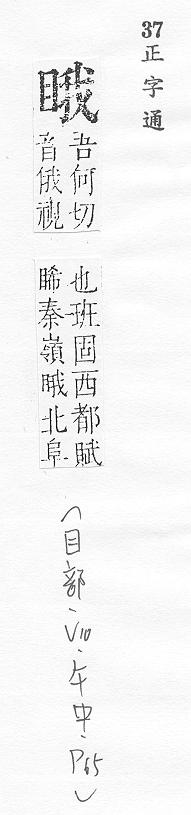 37正字通
䀹
吾何切
音俄視
也班固西都賦
睎秦嶺睋北阜
(目部、V10、午中、P65)